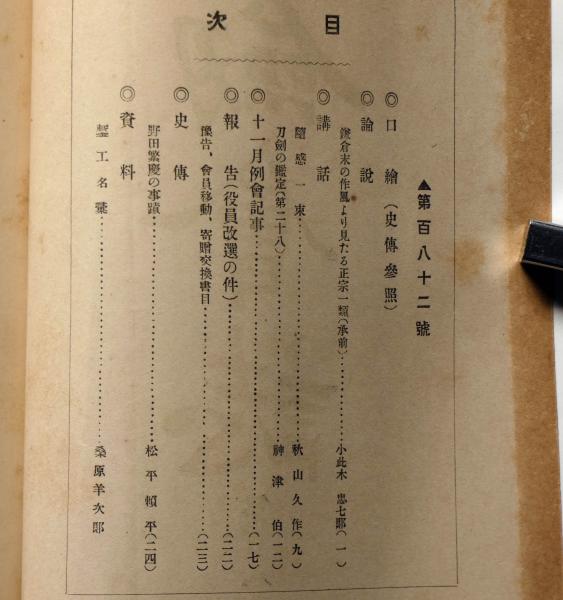 目次
▲第百八十二號
◎口繪（史傳參照）
◎論說
鎌倉末の作風より見たる正宗一類（承前）……小此木忠七郎（一）
◎講話
隨感一束……秋山久作（九）
刀劍の鑑定（第二十八）……神津伯（一二）
◎十一月例會記事……（一七）
◎報告（役員改選の件）……（二二）
豫告、會員移動、寄贈交換書目……（二三）
◎史傳
野田繁慶の事蹟……松平賴平（二四）
◎資料
工名彙……桑原羊次郎